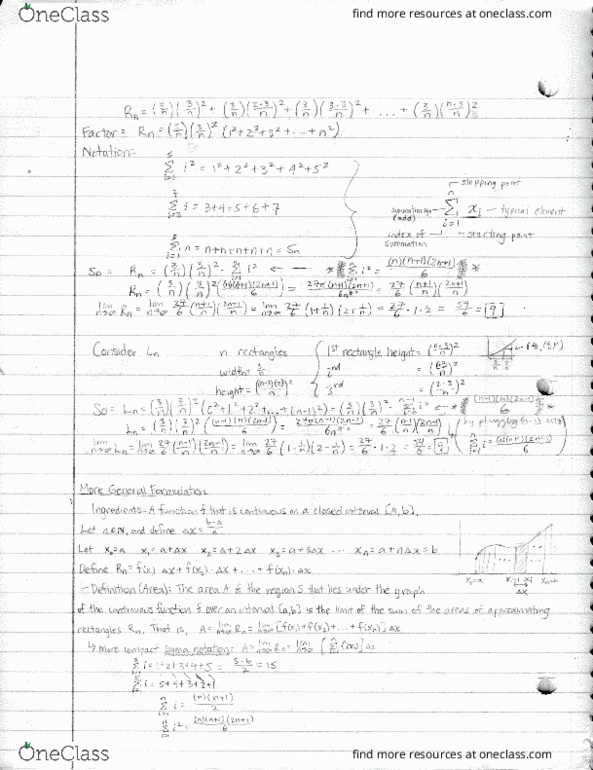 OneClass
find more resources at oneclass.com
Rn = (3/n)(3/n)² + (3/n)(2·3/n)² + (3/n)(3·3/n)² + ... + (3/n)(n·3/n)²
Factor = Rn = (3/n)(3/n)² (1²+2²+3²+...+n²)
Notation=
5 Σ i=1 i² = 1²+2²+3²+4²+5²
7 Σ i=3 i = 3+4+5+6+7
5 Σ i=1 n = n+n+n+n+n = 5n
stopping point
summation sign (add) n Σ i=1 xi - typical element
index of summation starting point
So = Rn = (3/n)(3/n)² · n Σ i=1 i² n Σ i=1 i² = (n)(n+1)(2n+1)/6
Rn = (3/n)(3/n)² ((n)(n+1)(2n+1)/6) = 27n(n+1)(2n+1)/6n³ = 27/6 (n+1/n)(2n+1/n)
lim n→∞ Rn = lim n→∞ 27/6 (n+1/n)(2n+1/n) = lim n→∞ 27/6 (1+1/n)(2+1/n) = 27/6 · 1·2 = 54/6 = 9
Consider Ln n rectangles 1st rectangle height =
width = 3/n 2nd
height = ((n-1)(3)/n)² 3rd = (2·3/n)²
So = Ln = (3/n)(3/n)² (0²+1²+2²+...+(n-1)²) = (3/n)(3/n)² · n-1 Σ i²
Ln = (3/n)(3/n)² ((n-1)(n)(2n-1)/6) = 27/6 (n-1/n)(2n-1/n) by plugging (n-1) into
lim n→∞ Ln = lim n→∞ 27/6 (n-1/n)(2n-1/n) = lim n→∞ 27/6 (1-1/n)(2-1/n) = 27/6 · 1·2 = 54/6 = 9 n Σ i=1 i² = (n)(n+1)(2n+1)/6
More General Formulation
Ingredients = A function f that is continuous on a closed interval [a,b].
Let n∈N, and define Δx = b-a/n
Let x0=a x1=a+Δx x2=a+2Δx x3=a+3Δx ... xn=a+nΔx=b
Define Rn = f(x1)·Δx + f(x2)·Δx + ... + f(xn)·Δx
x0=a xi-1 xi xn=b
Δx
- Definition (Area): The area A of the region S that lies under the graph
of the continuous function f over an interval [a,b] is the limit of the sum of the areas of approximating
rectangles Rn. That is, A = lim n→∞ Rn = lim n→∞ [f(x1)+f(x2)+...+f(xn)] Δx
↳ more compact sigma notation: A = lim n→∞ Rn = lim n→∞ [n Σ i=1 f(xi)] Δx
5 Σ i=1 i = 1+2+3+4+5 = 5·6/2 = 15
5 Σ i=1 i = 5+4+3+2+1
n Σ i=1 i = (n)(n+1)/2
n Σ i=1 i² = (n)(n+1)(2n+1)/6
OneClass
find more resources at oneclass.com